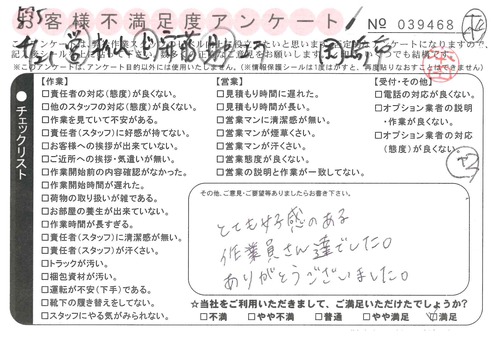 お客様不満足度アンケート
No 039468
【作業】
□責任者の対応(態度)が良くない。
□他のスタッフの対応(態度)が良くない。
□作業を見ていて不安がある。
□責任者(スタッフ)に好感が持てない。
□お客様への挨拶が出来ていない。
□ご近所への挨拶・気遣いが無い。
□作業開始前の内容確認がなかった。
□作業開始時間が遅れた。
□荷物の取り扱いが雑である。
□お部屋の養生が出来ていない。
□作業時間が長すぎる。
□責任者(スタッフ)に清潔感が無い。
□責任者(スタッフ)が汗くさい。
□トラックが汚い。
□梱包資材が汚い。
□運転が不安(下手)である。
□靴下の履き替えをしてない。
□スタッフにやる気がみられない。
【営業】
□見積もり時間に遅れた。
□見積もり時間が長い。
□営業マンに清潔感が無い。
□営業マンが煙草くさい。
□営業マンが汗くさい。
□営業態度が良くない。
□営業の説明と作業が一致してない。
【受付・その他】
□電話の対応が良くない。
□オプション業者の説明
・作業が良くない。
□オプション業者の対応
(態度)が良くない。
チェックリスト
その他、ご意見・ご要望等ありましたらお書き下さい。
とても好感のある
作業員さん達でした。
ありがとうございました。
☆当社をご利用いただきまして、ご満足いただけたでしょうか?
□不満 □やや不満 □普通 □やや満足 ☑満足